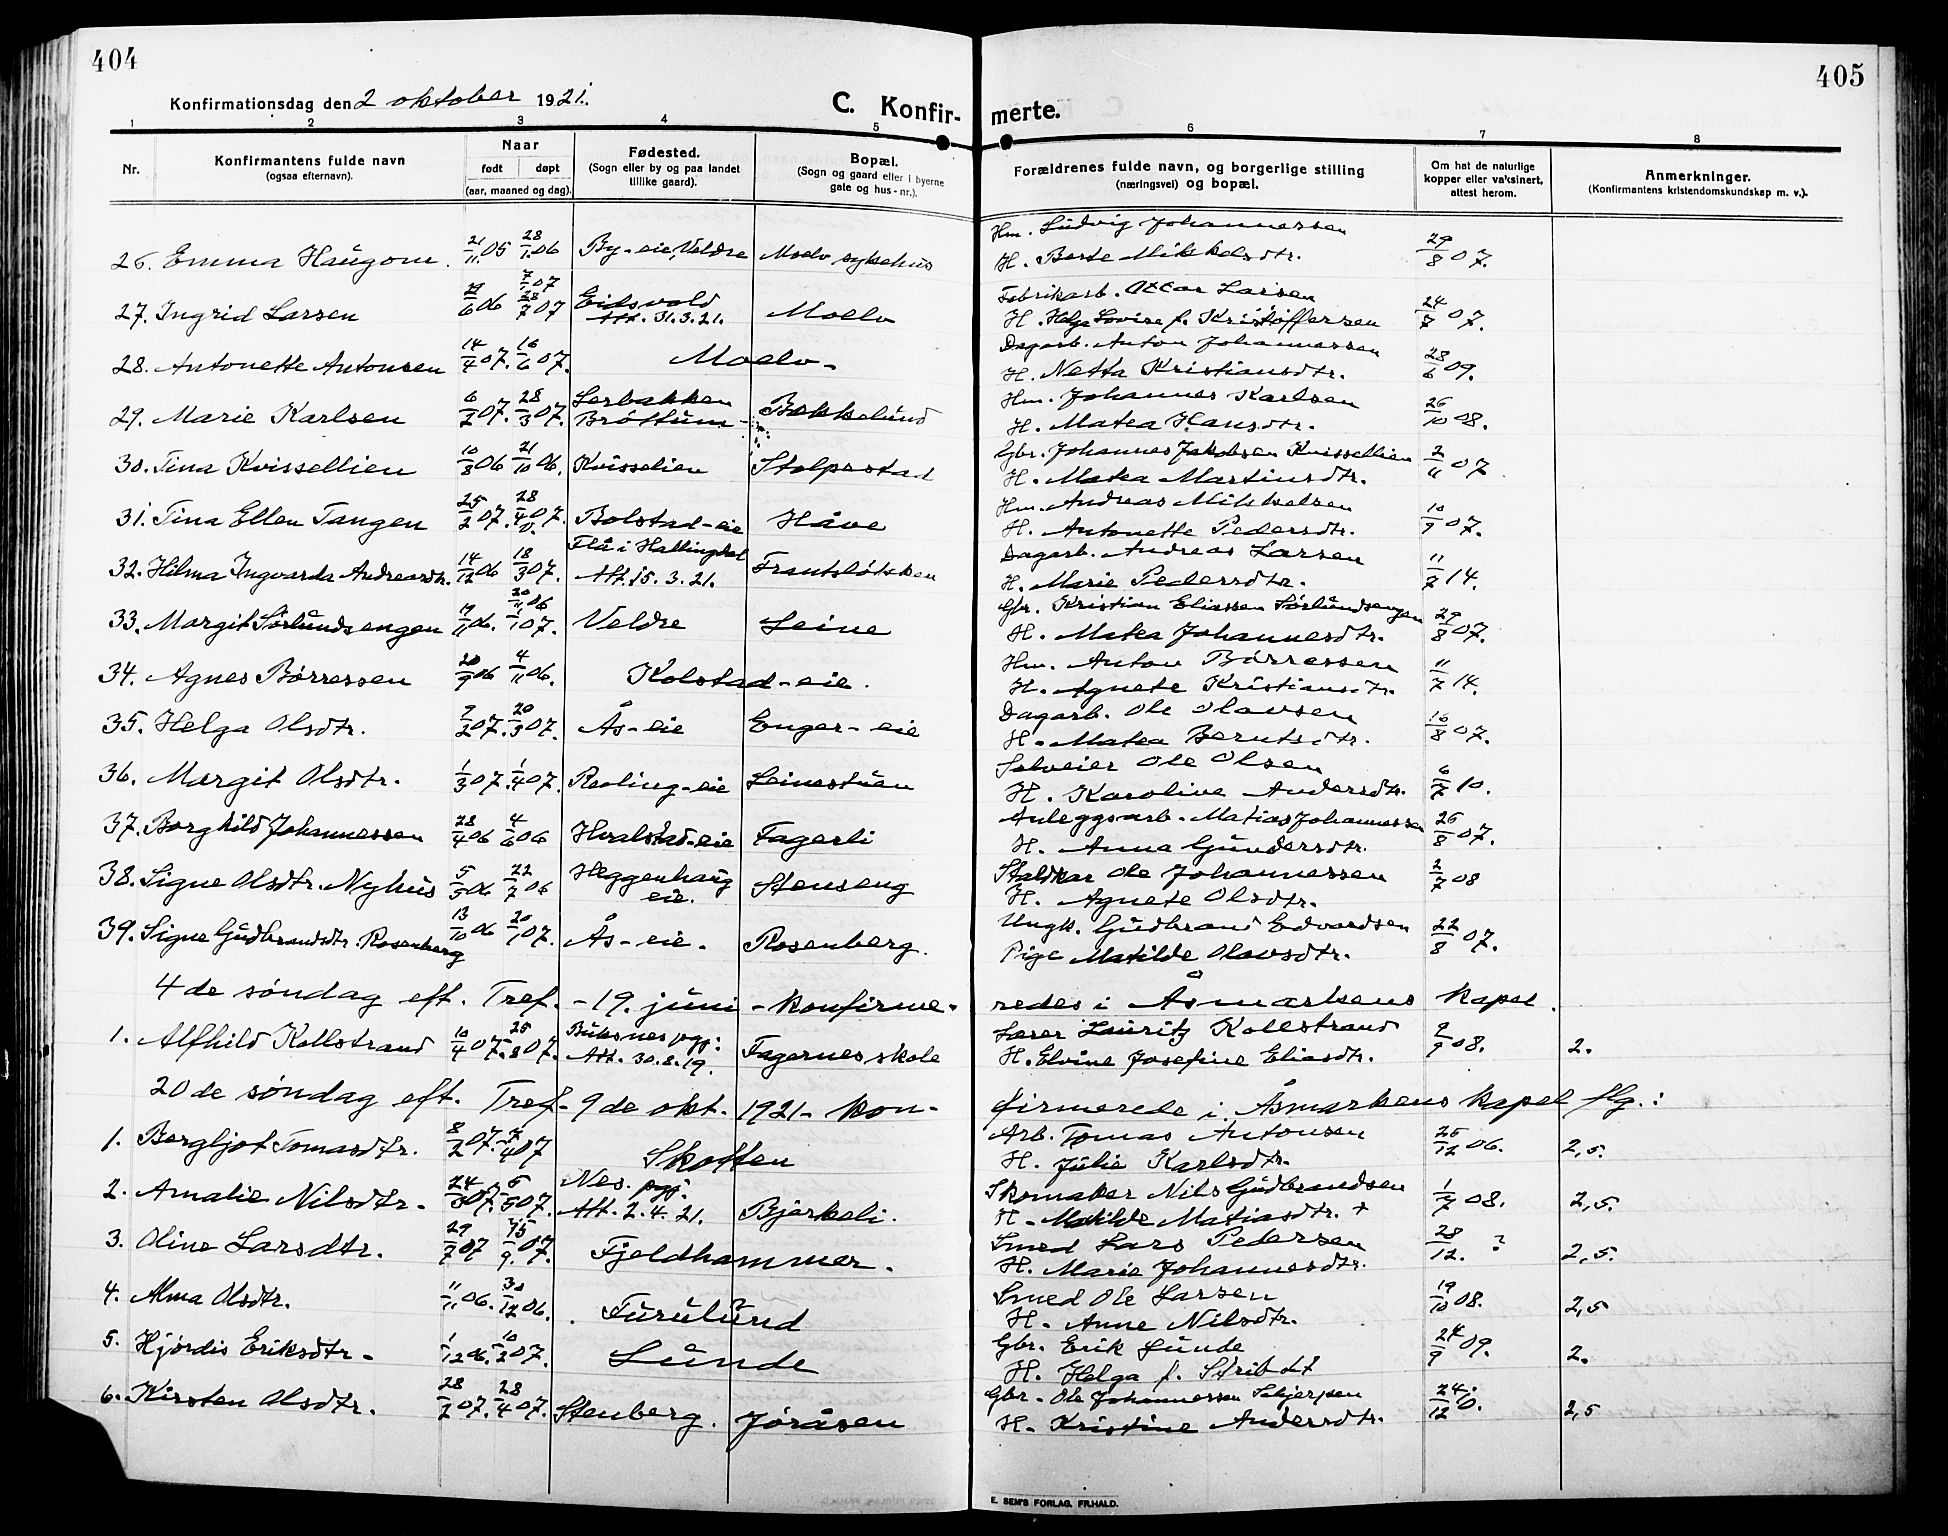 404
405
Konfirmationsdag den 2 oktober 1921.
C. Konfir-
merte.
1 2 3 4 5 6 7 8
Nr.
Konfirmantens fulde navn
(ogsaa efternavn).
Naar
født døpt
(aar, maaned og dag).
Fødested.
(Sogn eller by og paa landet
tillike gaard).
Bopæl.
(Sogn og gaard eller i byerne
gate og hus-nr.).
Forældrenes fulde navn, og borgerlige stilling
(næringsvei) og bopæl.
Om hat de naturlige
kopper eller vaksinert,
attest herom.
Anmerkninger.
(Konfirmantens kristendomskundskap m. v.).
26. Emma Haugom. 21/11 05 28/1 06 By-eie, Veldre Moelv sykehus Hm. Ludvig Johannessen 29/8 07.
H. Berte Mikkelsdtr.
27. Ingrid Larsen 29/6 06 7/7 07 28/7 07 Eidsvold Moelv Fabrikarb. Oskar Larsen 24/7 07.
Att. 31.3.21. H. Helga Lovise f. Kristoffersen
28. Antonette Antonsen 14/4 07. 16/6 07. Moelv - Dagarb. Anton Johannessen 28/6 09.
H. Netta Kristiansdtr.
29. Marie Karlsen 6/2 07. 28/3 07. Lerbakken Bakkelund Hm. Johannes Karlsen 26/10 08.
Brøttum - H. Matea Hansdtr.
30. Tina Kvissellien 10/8 06 21/10 06. Kvisselien Stolpestad Gbr. Johannes Jakobsen Kvissellien 2/11 07
H. Matea Martinsdtr.
31. Tina Ellen Tangen 25/2 07. 28/4 07. Bolstad-eie Håve Hm. Andreas Mikkelsen 10/9 07.
H. Antonette Pedersdtr.
32. Hilma Ingvarda Andreasdtr. 14/12 06 18/3 07. Flå i Hallingdal Frantsløkken Dagarb. Andreas Larsen 11/7 14.
Att. 15.3.21. H. Marie Pedersdtr.
33. Margit Sørlundsengen 4/11 06. 20/11 06 1/1 07. Veldre Leine Gbr. Kristian Eliassen Sørlundsengen 29/8 07.
H. Matea Johannesdtr.
34. Agnes Børressen 20/9 06 4/11 06. Kolstad-eie. Hm. Anton Børressen 11/7 14.
H. Agnete Kristiansdtr.
35. Helga Olsdtr. 7/2 07. 20/3 07. Ås-eie Enger-eie Dagarb. Ole Olavsen 16/8 07.
H. Matea Berntsdtr.
36. Margit Olsdtr. 1/3 07. 1/4 07. Røling-eie Leinestuen Selveier Ole Olsen 6/7 10.
H. Karoline Andersdtr.
37. Borghild Johannessen 28/4 06 4/6 06 Hvalstad-eie Fagerli Anleggsarb. Matias Johannessen 26/8 07.
H. Anna Gundersdtr.
38. Signe Olsdtr. Nyhus 5/5 06 22/7 06 Heggenhaug Stenseng Staldkar Ole Johannessen 2/7 08
eie. H. Agnete Olsdtr.
39. Signe Gudbrandsdtr. Rosenberg 13/10 06 20/1 07. Ås-eie. Rosenberg. Ungk. Gudbrand Edvardsen 22/8 07.
Pige Matilde Olavsdtr.
4de søndag eft. Tref. - 19. juni - konfirme-redes i Åsmarkens kapel.
1. Alfhild Kollstrand 10/4 07. 25/8 07. Buksnes pgj: Fagernes skole Lærer Lauritz Kollstrand 2/9 08. 2.
Att. 30.8.19. H. Elvine Josefine Eliasdtr.
20de søndag eft. Tref - 9de okt. 1921 - kon-firmerede i Åsmarkens kapel flg.:
1. Bergljot Tomasdtr. 8/2 07. 7/4 07 Skotten Arb. Tomas Antonsen 25/12 06. 2,5.
H. Julie Karlsdtr.
2. Amalie Nilsdtr. 24/3 07. 5/5 07. Nes. pgj. Bjørkeli. Skomaker Nils Gudbrandsen 1/7 08. 2,5.
Att. 2.4.21. H. Matilde Matiasdtr. +
3. Oline Larsdtr. 29/7 07 15/9 07. Fjeldhammer. Smed Lars Pedersen 28/12. ? 2,5.
H. Marie Johannesdtr.
4. Alma Olsdtr. 11/11 06. 30/12 06. Furulund Smed Ole Larsen 19/10 08. 2,5
H. Anne Nilsdtr.
5. Hjørdis Eriksdtr - 1/12 06. 10/2 07. Lunde Gbr. Erik Lunde 24/9 09. 2.
H. Helga f. Stribolt
6. Kirsten Olsdtr. 28/2 07. 28/4 07. Stenberg. Jøråsen Gbr. Ole Johannessen 24/12 10. 2,5
H. Kristine Andersdtr.
E. SEM'S FORLAG. FR.HALD.